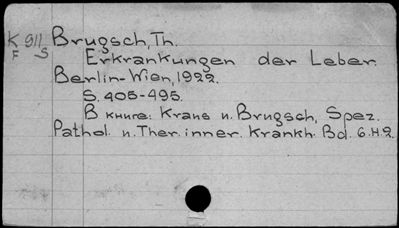 K 911 Brugsch, Th.
F S Erkrankungen der Leber.
Berlin-Wien, 1922.
S. 405-495.
В книге: Kraus u. Brugsch, Spez.
Pathol. u. Ther. inner. Krankh. Bd. 6. H. 2.